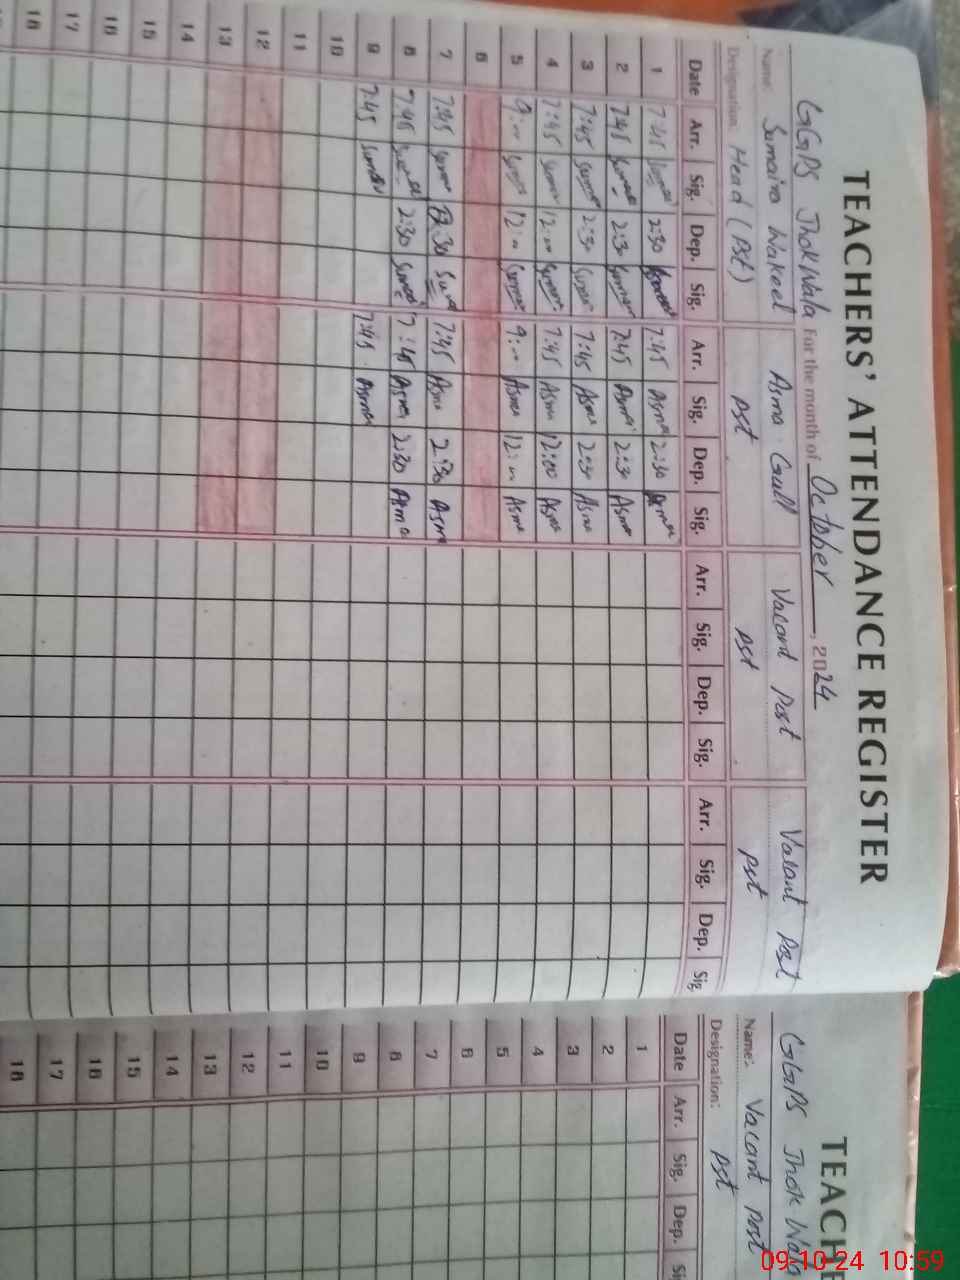 TEACHERS' ATTENDANCE REGISTER
GGPS Jhok Wala For the month of October, 2024
Name: Sumaira Wakeel Asma Gull Vacant Post Vacant Post
Designation: Head (Pst) Pst Pst Pst
Date Arr. Sig. Dep. Sig. Arr. Sig. Dep. Sig. Arr. Sig. Dep. Sig. Arr. Sig. Dep. Sig
1 7:45 2:30 7:45 Asma 2:30 Asma
2 7:45 2:30 7:45 Asma 2:30 Asma
3 7:45 2:30 7:45 Asma 2:30 Asma
4 7:45 12:00 7:45 Asma 12:00 Asma
5 9:00 12:00 9:00 Asma 12:00 Asma
6
7 7:45 2:30 7:45 Asma 2:30 Asma
8 7:45 2:30 7:45 Asma 2:30 Asma
9 7:45 7:45 Asma
10
11
12
13
14
15
16
17
18
TEACHE
GGPS Jhok Wala
Name: Vacant Post
Designation: Pst
Date Arr. Sig. Dep. Si
1
2
3
4
5
6
7
8
9
10
11
12
13
14
15
16
17
18
09-10-24 10:59